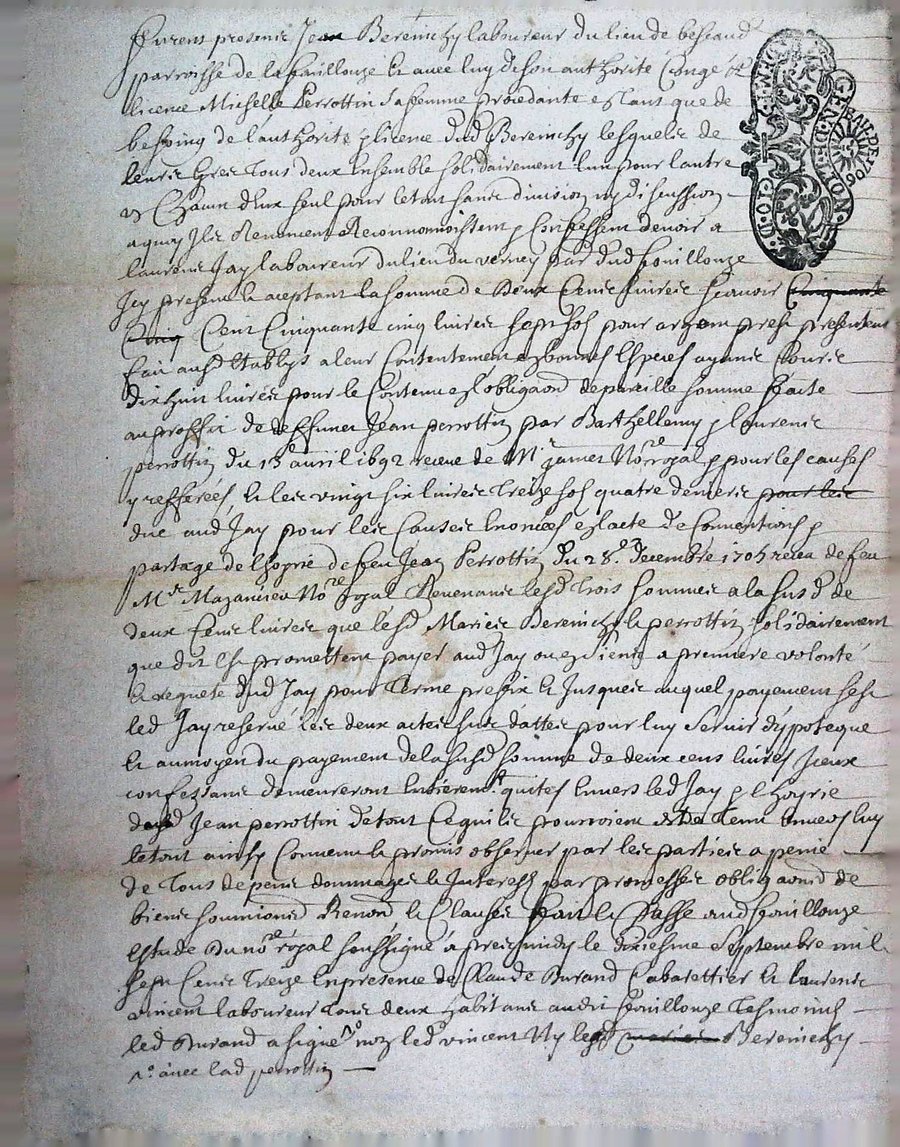 furent presents Jean Bereinchy laboureur du lieu de
parroisse de la fouillouze & avec luy de son authorité Congé &
licence Michelle Perrottin sa femme procedante estant que de
besoing de l'authorité & licence dud Bereinchy lesquelz de
leurs grez tous deux Ensemble solidairement l'un pour l'autre
& Chacun d'eux seul pour le tout sans division ny discussion
a quoy Ilz Renoncent Reconnoissent & Confessent devoir a
laurens Jay laboureur du lieu du verney par dud fouillouze
Icy present & aceptant la somme de Deux Cents livres scavoir Cinquante
Cinq Cent Cinquante cinq livres sept sols pour argent prest presentement
fait aud Establys a leur Contentement en bonnes Especes ayans Cours
dix huit livres pour le Contenu en l'obligaon de pareille somme faite
au proffit de deffunct Jean perrottin par Barthellemy & laurens
perrottin du 15 avril 1692 receue de Me jamet Nore royal & pour les causes
y refferées, & les vingt six livres Treize sols quatre deniers pour les
due aud Jay pour les Causes Enoncées en l'acte de Conventions &
partage de l'hoyrie de feu Jean Perrottin du 28e Decembre 1705 receu de feu
Me Mazancieu Nore Royal Revenants lesd trois sommes a la susd de
deux Cents livres que lesd Mariés Bereinchy & perrottin solidairement
que dit Est promettent payer aud Jay ou es siens a premiere volonté
& requete dud Jay pour Terme prefix & Jusques auquel payement sest
led Jay reservé les deux actes sus dattés pour luy servir d'ypoteque
& aumoyen du payement de la susd somme de deux cens livres Iceux
confessants demeureront Entierement quites Envers led Jay & l'hoyrie
dud Jean perrottin de tout Ce quils pourroient Estre Tenu Envers luy
le tout ainsy Convenu & promis observer par les parties a peine
de Tous depens dommages & Interests par promesses obligaons de
biens soumions Renon & Clauses fait & Passé aud fouillouze
Estude du nore royal soussigné apres midy le dixiesme Septembre mil
sept Cents Treize En presence de Claude Durand Cabarettier & laurens
vincent laboureur tous deux habitans audit fouillouze Tesmoins
led Durand a signé non led vincent Ny lesd mariés Bereinchy
avec lad perrottin
GEN DE LYON
BAIL PR 1706